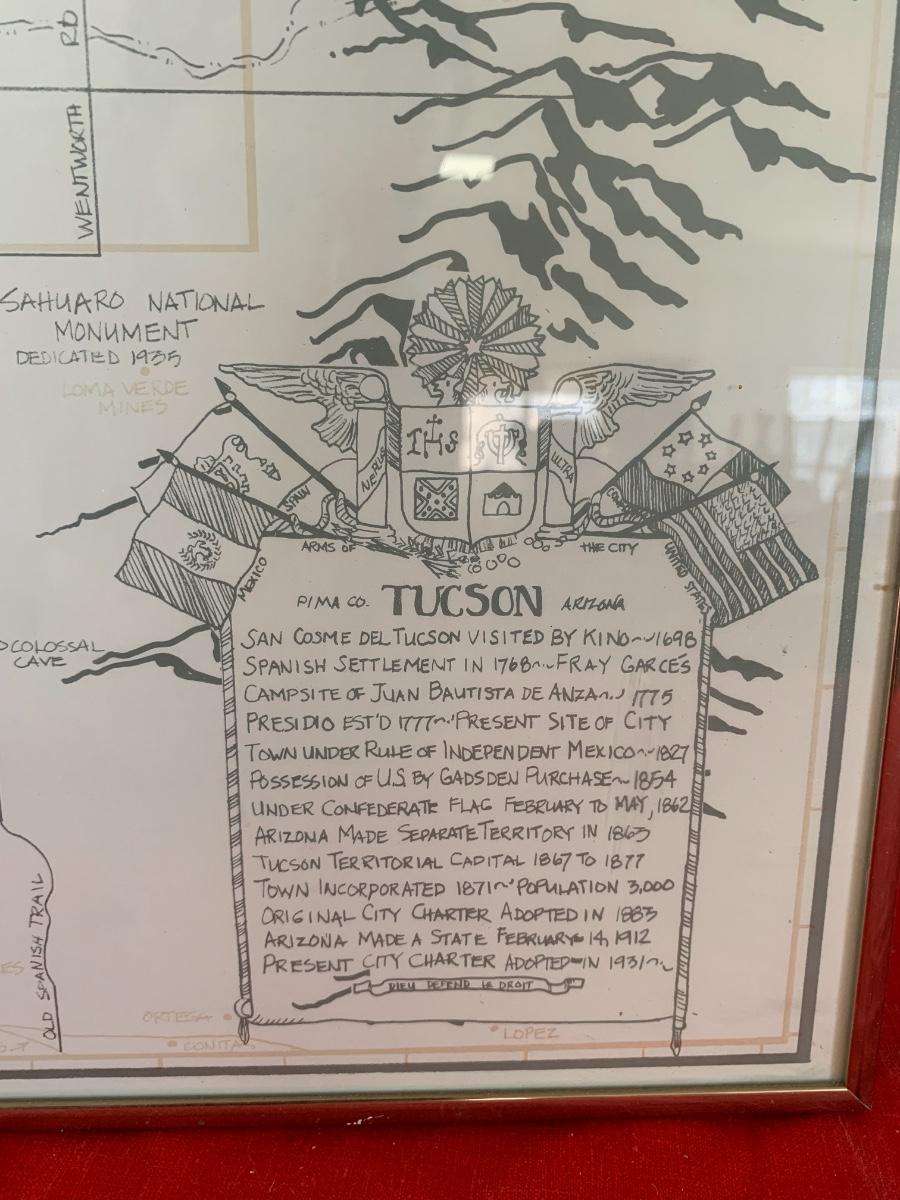 RD
WENTWORTH
SAHUARO NATIONAL
MONUMENT
DEDICATED 1935
LOMA VERDE
MINES
IHS
NE PLUS
ULTRA
SPAIN
MEXICO
UNITED STATES
ARMS OF
THE CITY
PIMA CO. TUCSON ARIZONA
SAN COSME DEL TUCSON VISITED BY KINO~1698
SPANISH SETTLEMENT IN 1768~FRAY GARCÉS
CAMPSITE OF JUAN BAUTISTA DE ANZA~1775
PRESIDIO EST'D 1777~PRESENT SITE OF CITY
TOWN UNDER RULE OF INDEPENDENT MEXICO~1827
POSSESSION OF U.S. BY GADSDEN PURCHASE~1854
UNDER CONFEDERATE FLAG FEBRUARY TO MAY, 1862
ARIZONA MADE SEPARATE TERRITORY IN 1863
TUCSON TERRITORIAL CAPITAL 1867 TO 1877
TOWN INCORPORATED 1871~POPULATION 3,000
ORIGINAL CITY CHARTER ADOPTED IN 1883
ARIZONA MADE A STATE FEBRUARY 14, 1912
PRESENT CITY CHARTER ADOPTED IN 1931~
DIEU DEFEND LE DROIT
COLOSSAL
CAVE
OLD SPANISH TRAIL
ORTEGA
CONITAS
LOPEZ